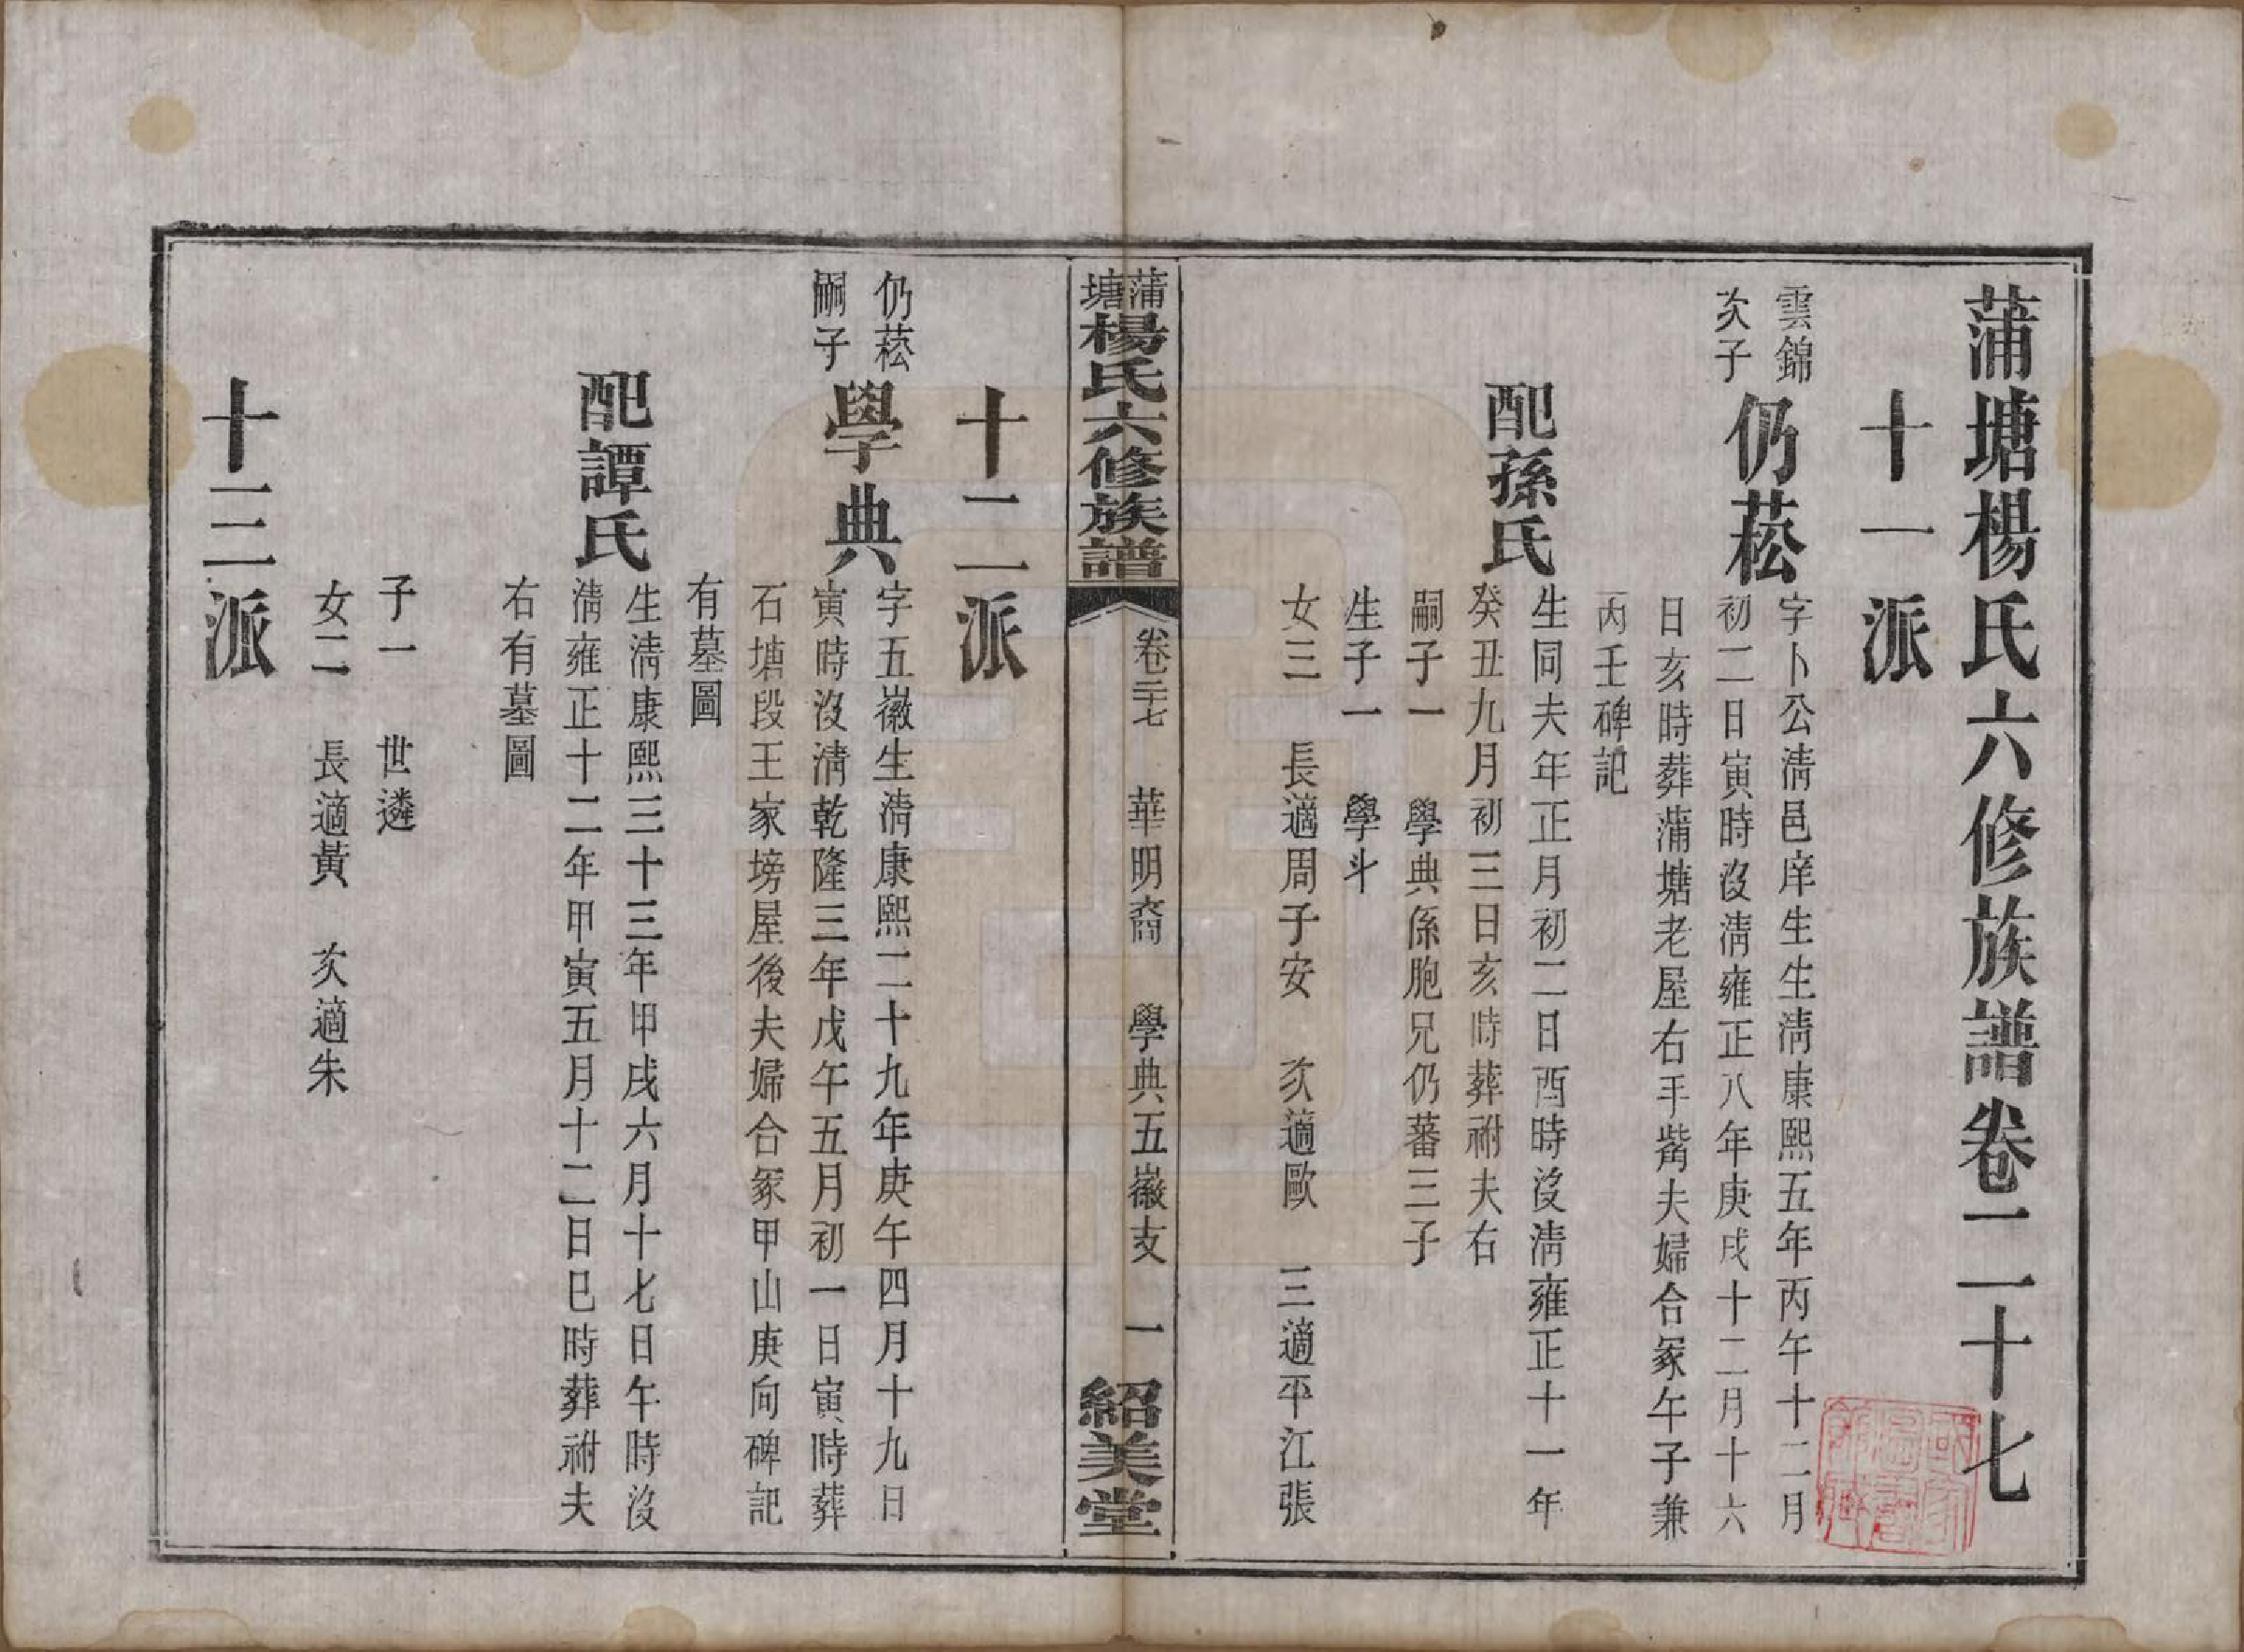 蒲塘楊氏六修族譜卷二十七
十一派
雲錦
次子
仍菘
字卜公淸邑庠生生淸康熙五年丙午十二月
初二日寅時沒淸雍正八年庚戌十二月十六
日亥時葬蒲塘老屋右手觜夫婦合冢午子兼
丙壬碑記
配孫氏
生同夫年正月初二日酉時沒淸雍正十一年
癸丑九月初三日亥時葬祔夫右
嗣子一　學典係胞兄仍蕃三子
生子一　學斗
女三　長適周子安　次適歐　三適平江張
蒲塘楊氏六修族譜
卷二十七　華明裔　學典五徽支　一
紹美堂
十二派
仍菘
嗣子
學典
字五徽生淸康熙二十九年庚午四月十九日
寅時沒淸乾隆三年戊午五月初一日寅時葬
石塘段王家塝屋後夫婦合冢甲山庚向碑記
有墓圖
配譚氏
生淸康熙三十三年甲戌六月十七日午時沒
淸雍正十二年甲寅五月十二日巳時葬祔夫
右有墓圖
子一　世遴
女二　長適黃　次適朱
十三派